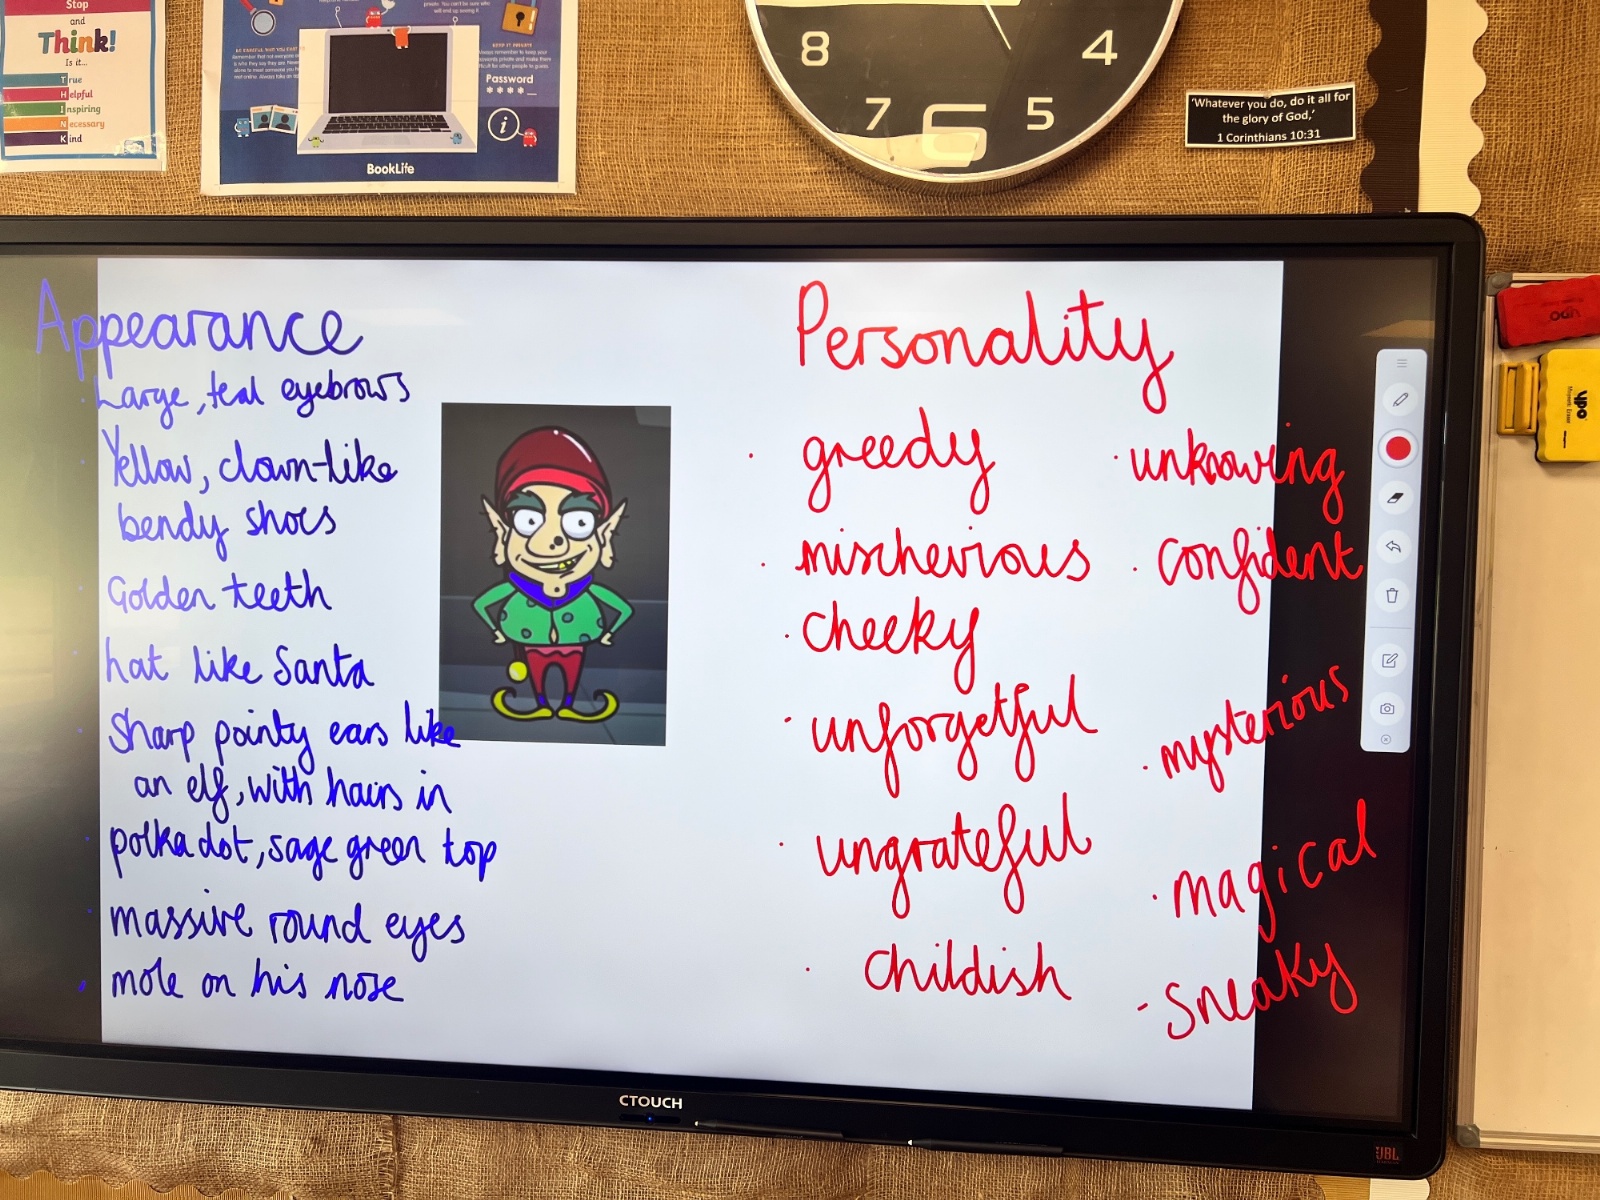 Stop
and
Think!
Is it...
True
Helpful
Inspiring
Necessary
Kind
KEEP IT PRIVATE
Password
****_
BookLife
8
7
6
5
4
'Whatever you do, do it all for
the glory of God,'
1 Corinthians 10:31
Appearance
Large, teal eyebrows
Yellow, clown-like
bendy shoes
Golden teeth
hat like Santa
Sharp pointy ears like
an elf, with hairs in
polka dot, sage green top
massive round eyes
mole on his nose
Personality
greedy
mischevious
cheeky
unforgetful
ungrateful
childish
unknowing
confident
mysterious
magical
Sneaky
CTOUCH
JBL
ypo
ypo